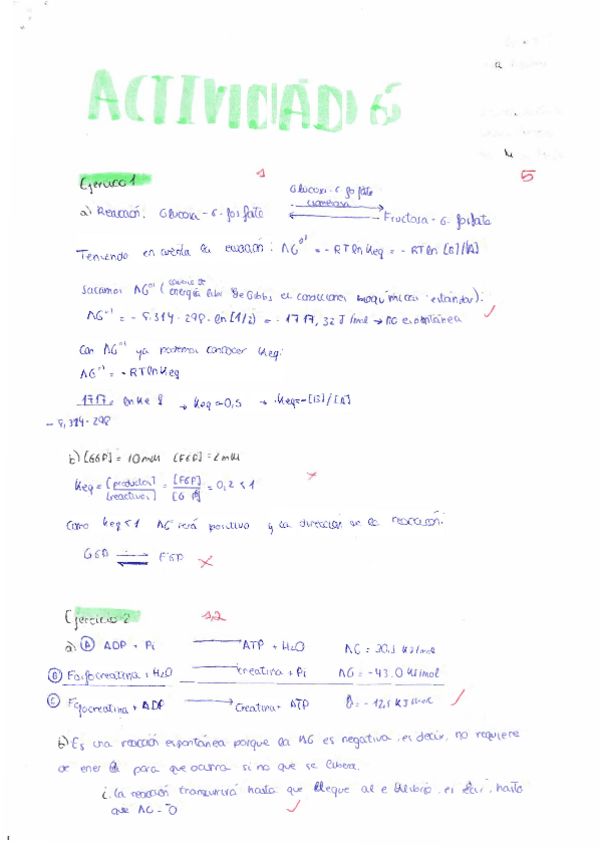 ACTIVIDAD 6
Ejercicio 1
5
Glucosa-6 fosfato
isomerasa
a) Reacción: Glucosa-6-fosfato
Fructosa-6-fosfato
Teniendo en cuenta la ecuación: ΔG°' = -RTlnKeq = -RTln [B]/[A]
Sacamos ΔG°' (energía libre de Gibbs en condiciones bioquímicas estándar):
ΔG°' = - 8.314·298·ln[1/2] = 1717,32 J/mol → no espontánea
Con ΔG°' ya podemos conocer Keq:
ΔG°' = -RTlnKeq
1717 = lnKeq → Keq=0,5 → Keq=[B]/[A]
-8,314·298
b) [G6P] = 10mM [F6P] = 2mM
Keq = [productos]/[reactivos] = [F6P]/[G6P] = 0,2 < 1
Como Keq<1 ΔG será positivo y la dirección en la reacción:
G6P F6P
Ejercicio 2
1,2
a) A ADP + Pi → ATP + H2O ΔG = 30,5 KJ/mol
B Fosfocreatina + H2O → creatina + Pi ΔG = -43.0 KJ/mol
C Fosfocreatina + ADP → Creatina + ATP = -12,5 KJ/mol
b) Es una reacción espontánea porque la ΔG es negativa, es decir, no requiere
de energía para que ocurra si no que se libera.
i. La reacción transcurrirá hasta que llegue al equilibrio, es decir, hasta
que ΔG = 0